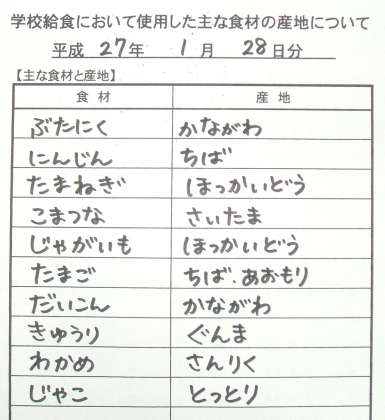 学校給食において使用した主な食材の産地について
平成 27年 1月 28日分
【主な食材と産地】
食材 産地
ぶたにく かながわ
にんじん ちば
たまねぎ ほっかいどう
こまつな さいたま
じゃがいも ほっかいどう
たまご ちば.あおもり
だいこん かながわ
きゅうり ぐんま
わかめ さんりく
じゃこ とっとり